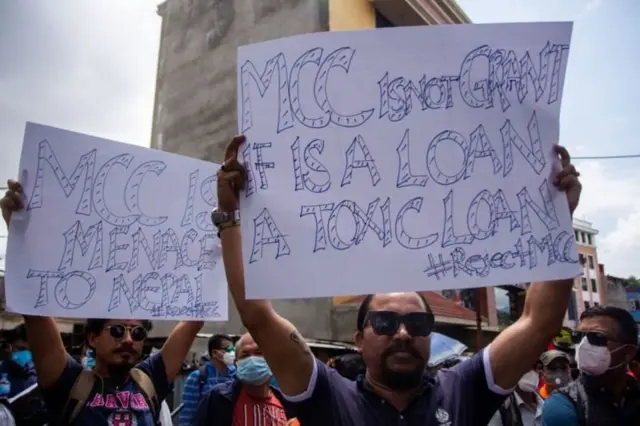 MCC IS
MENACE
TO NEPAL
#Reject MCC
MCC IS NOT GRANT
IF IS A LOAN
A TOXIC LOAN
#Reject MCC